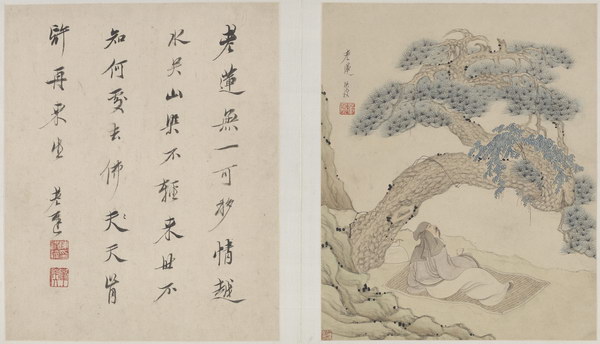 老蓮無一可移情越
水吳山染不輕來世不
知何處去佛夫天肯
許再來生 老蓮
老蓮洪綬